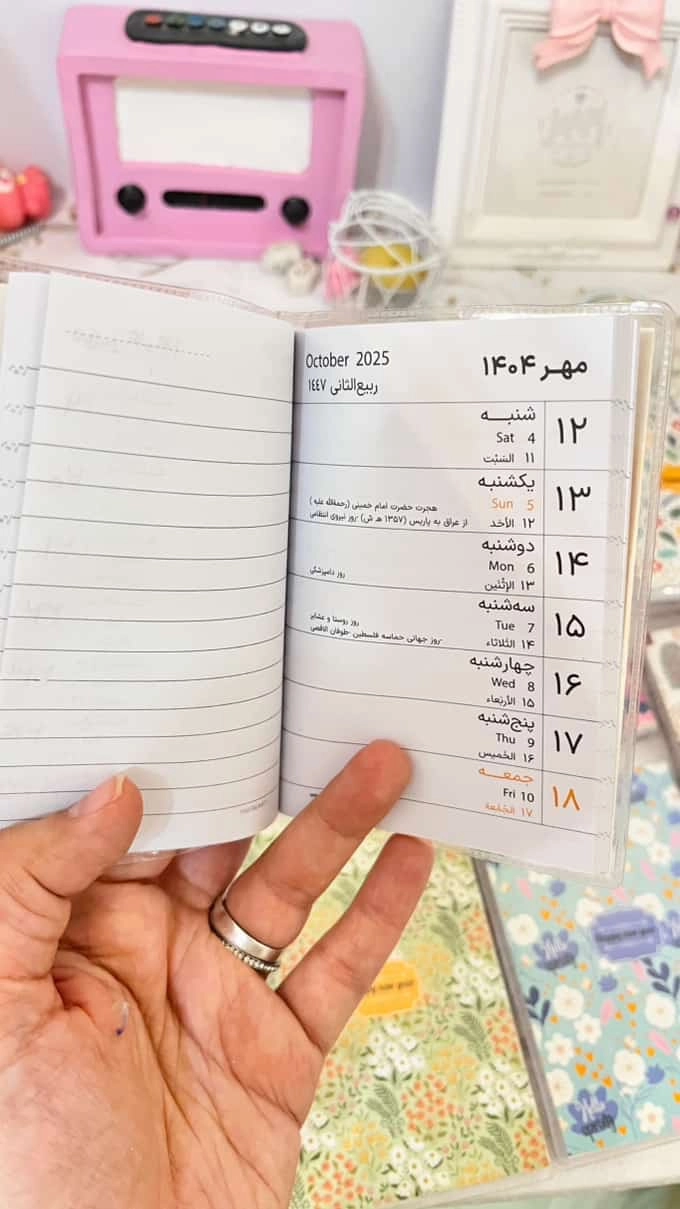 October 2025
ربيع‌الثانی ١٤٤٧
مهـر ۱۴۰۴
۱۲
شنبـــه
Sat 4
١١ السَّبْت
۱۳
یکشنبـه
Sun 5
١٢ الأحَد
هجرت حضرت امام خمینی (رحمة‌الله علیه)
از عراق به پاریس (۱۳۵۷ هـ ش) -روز نیروی انتظامی
۱۴
دوشنبه
Mon 6
١٣ الإثْنَين
روز دامپزشکی
۱۵
سه‌شنبه
Tue 7
١٤ الثَّلاثاء
روز روستا و عشایر
-روز جهانی حماسه فلسطین -طوفان الاقصی
۱۶
چهارشنبه
Wed 8
١٥ الأربَعاء
۱۷
پنج‌شنبه
Thu 9
١٦ الخَميس
۱۸
جمعـــه
Fri 10
١٧ الجُمْعَة
Happy new year